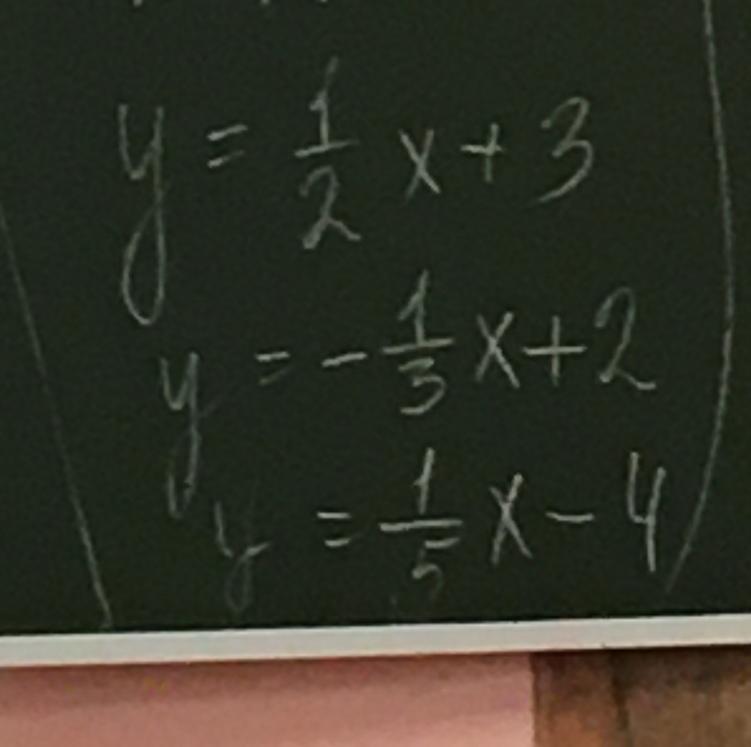 y = 1/2 x + 3
y = - 1/3 x + 2
y = 1/5 x - 4